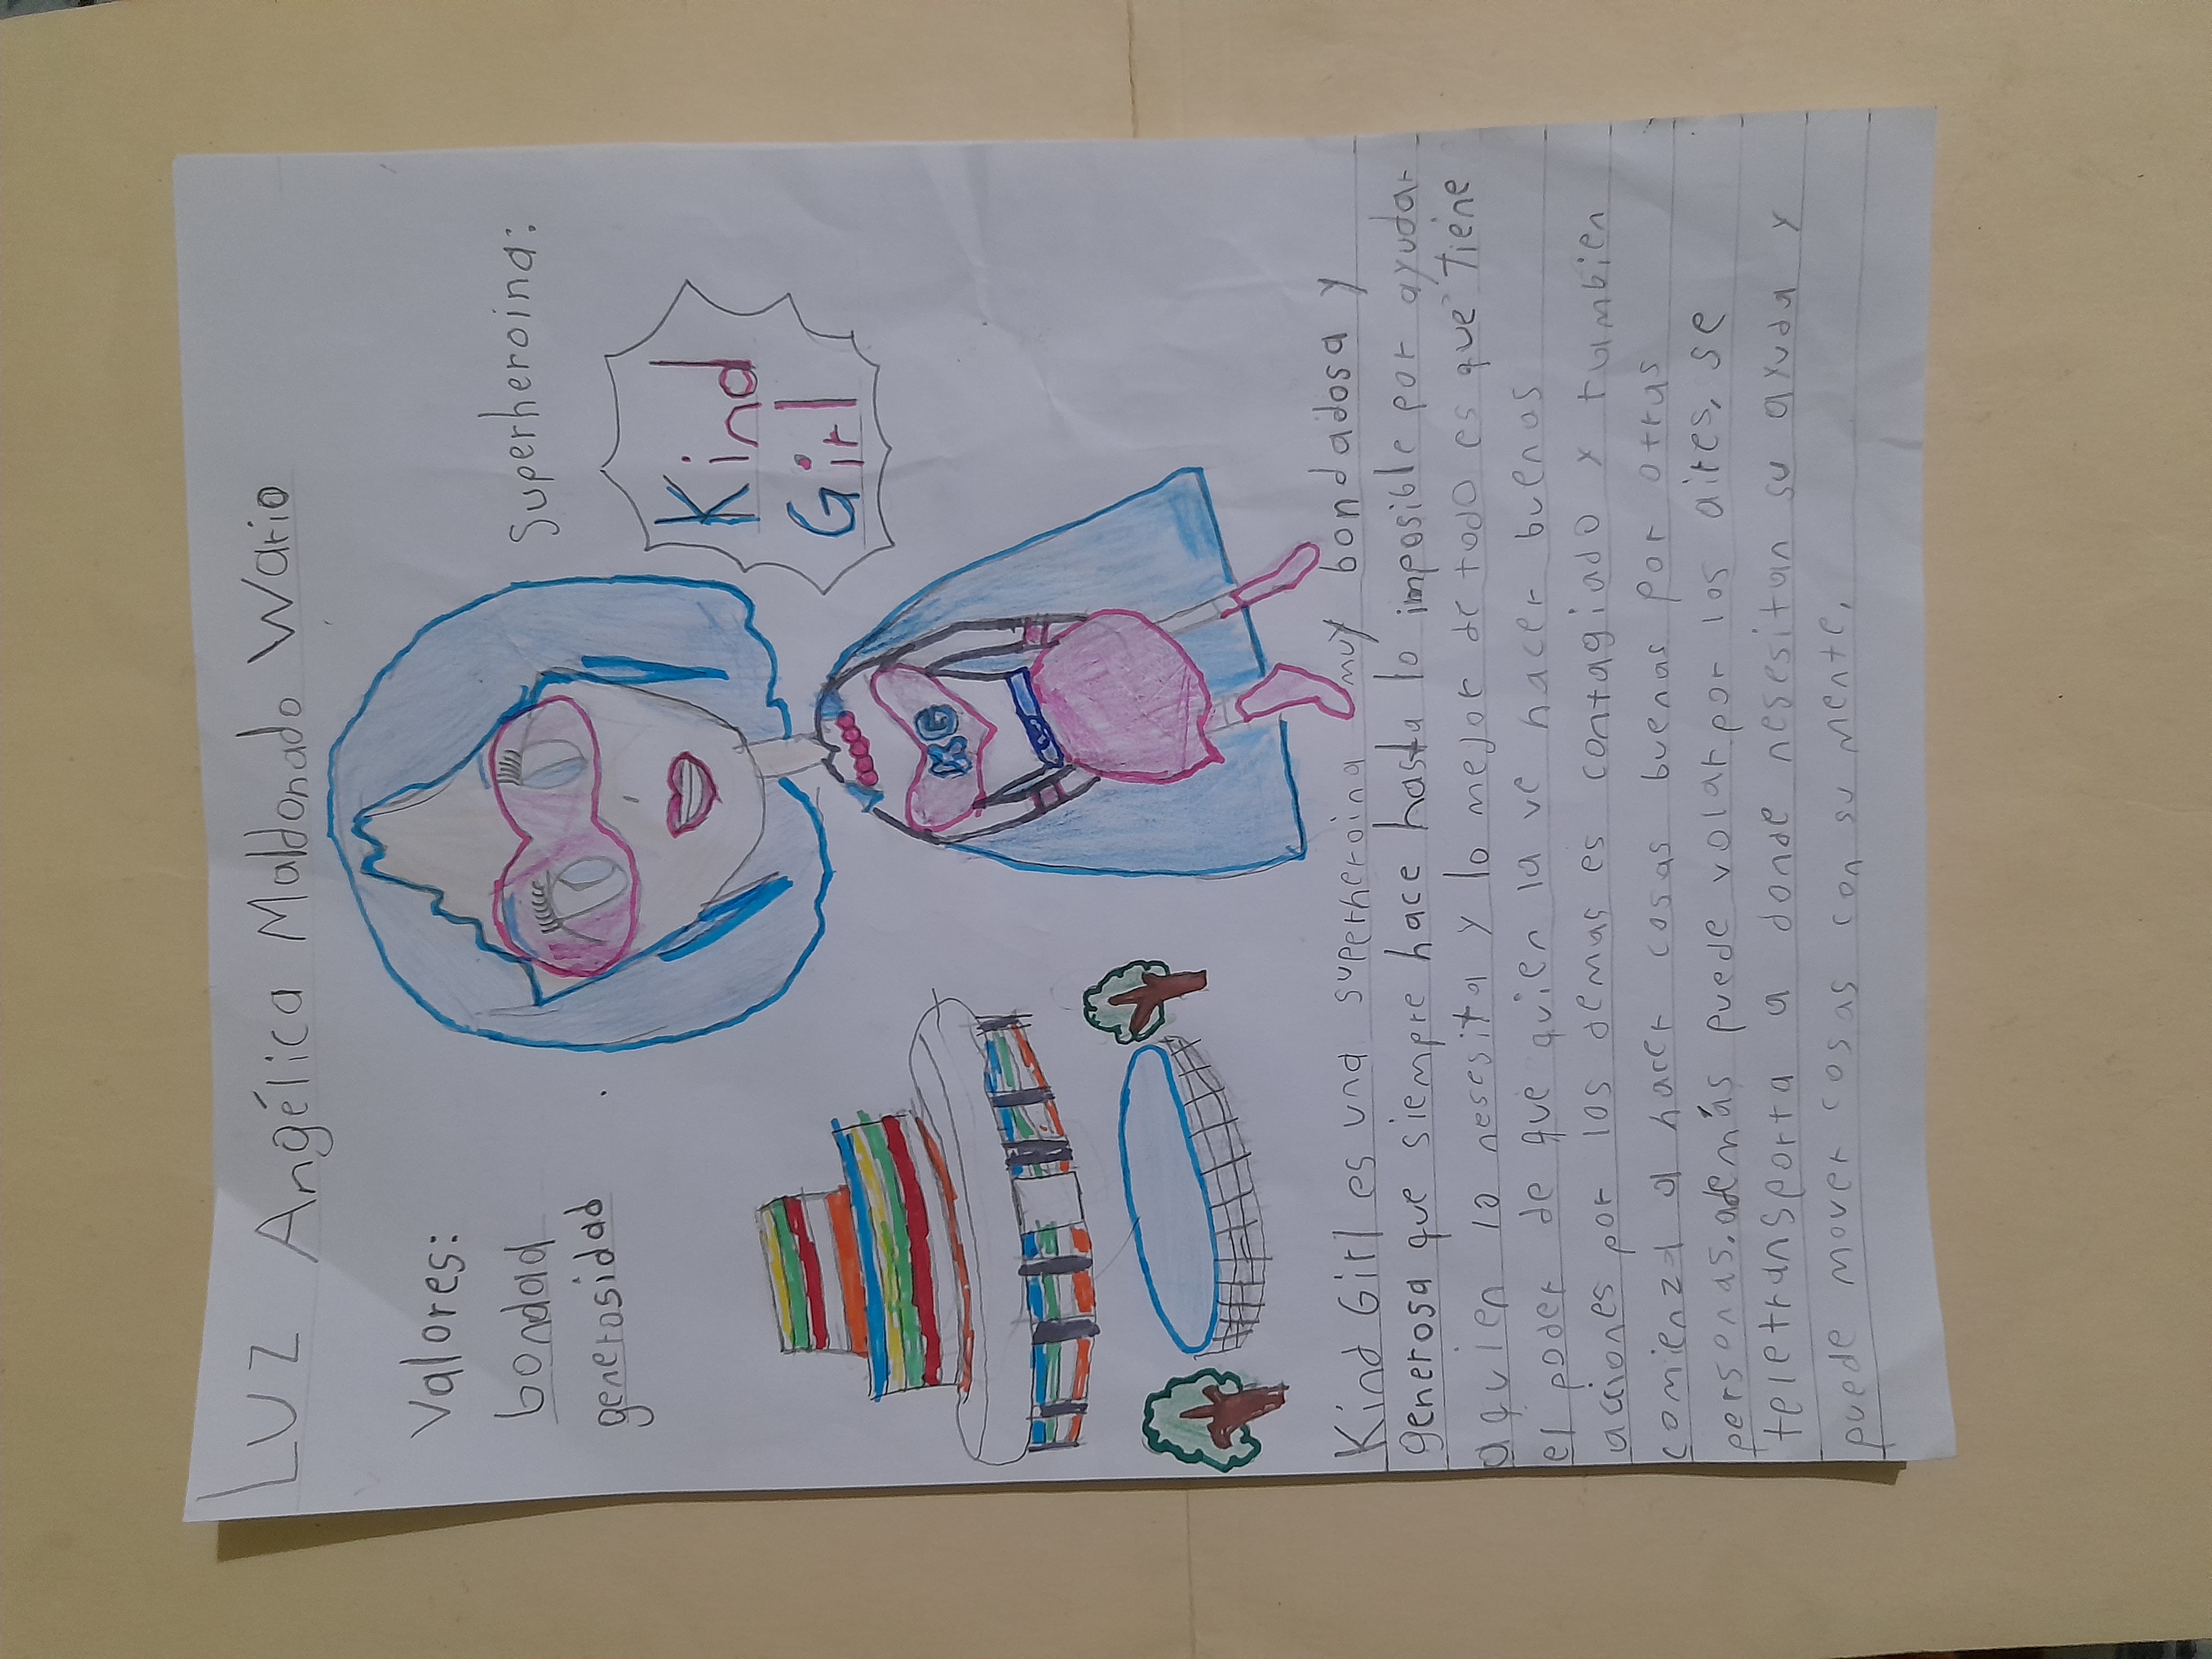 Luz Angélica Maldonado Wario
Valores:
bondad
generosidad
Superheroina:
Kind
Girl
KG
Kind Girl es una superheroina muy bondadosa y
generosa que siempre hace hasta lo imposible por ayudar
aquien lo nesesita y lo mejor de todo es que tiene
el poder de que quien la ve hacer buenas
acciones por los demas es contagiado y tambien
comienza a hacer cosas buenas por otras
personas. además puede volar por los aires, se
teletransporta a donde nesesitan su ayuda y
puede mover cosas con su mente.